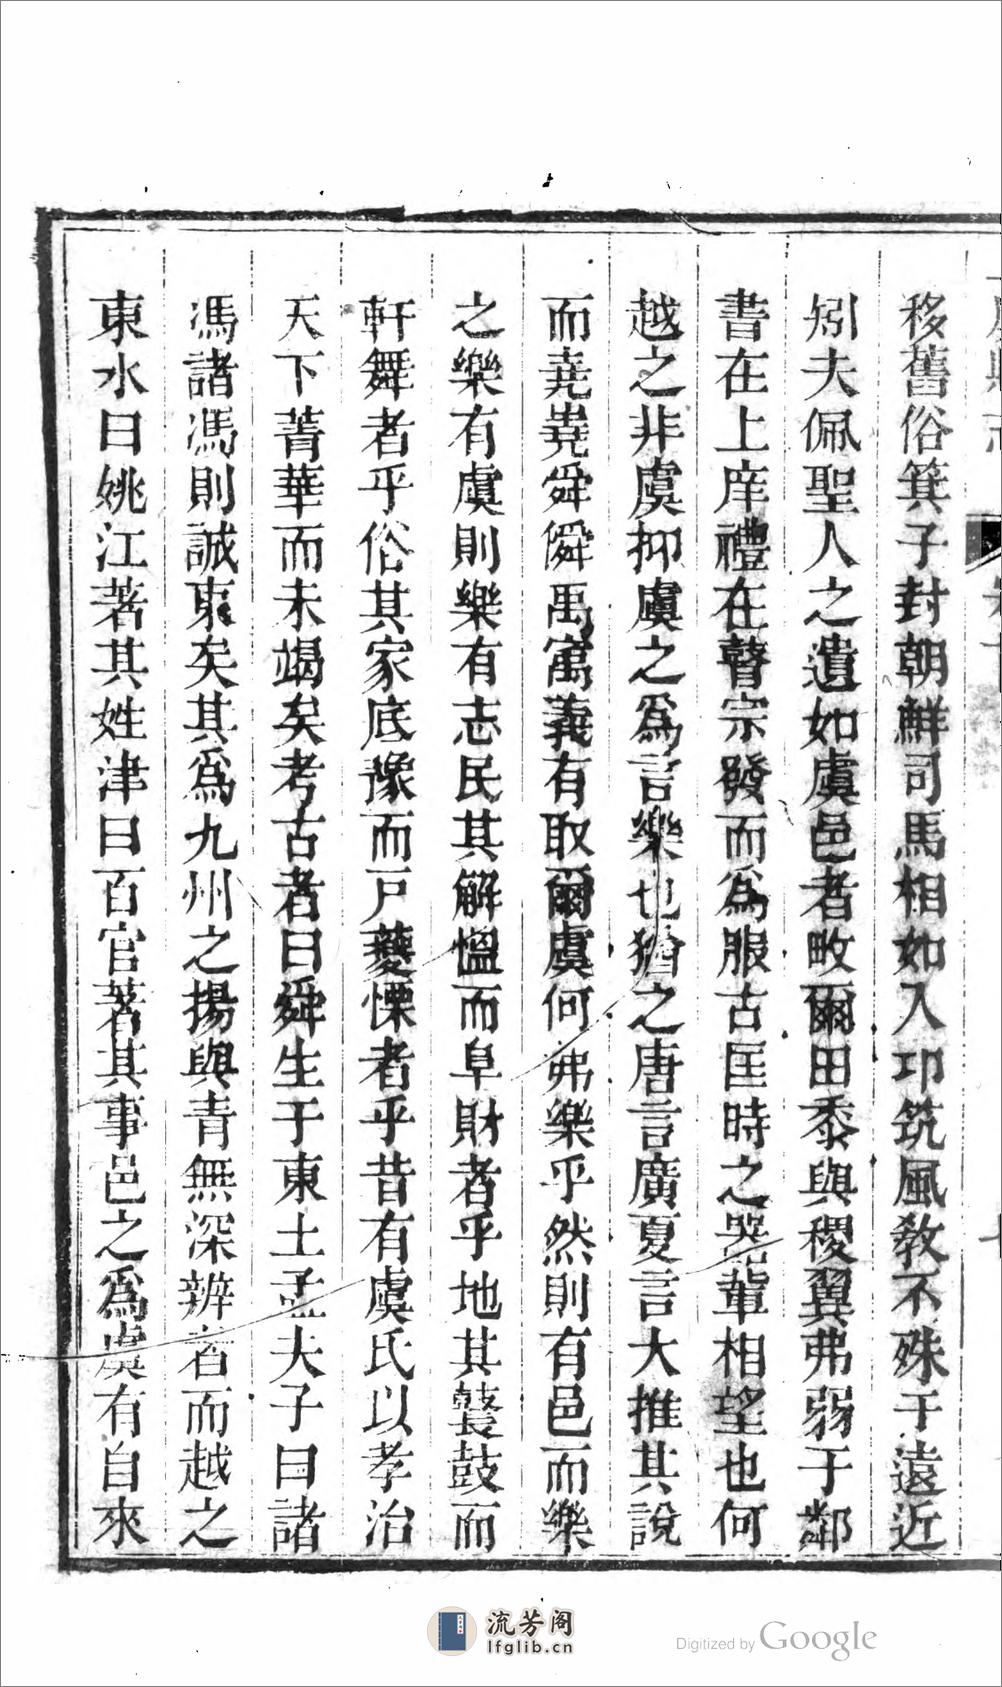 移舊俗箕子封朝鮮司馬相如入邛筑風敎不殊于遠近
矧夫佩聖人之遺如虞邑者畋爾田黍與稷翼弗弱于鄰
書在上庠禮在瞽宗發而爲服古匡時之器輩相望也何
越之非虞抑虞之爲言樂也猶之唐言廣夏言大推其說
而堯嶤舜僢禹寓義有取爾虞何弗樂乎然則有邑而樂
之樂有虞則樂有志民其解慍而阜財者乎地其鼚鼓而
軒舞者乎俗其家底豫而戸夔慄者乎昔有虞氏以孝治
天下菁華而未竭矣考古者曰舜生于東土孟夫子曰諸
馮諸馮則誠東矣其爲九州之揚與青無深辨者而越之
東水曰姚江著其姓津曰百官著其事邑之爲虞有自來
流芳阁
lfglib.cn
Digitized by Google